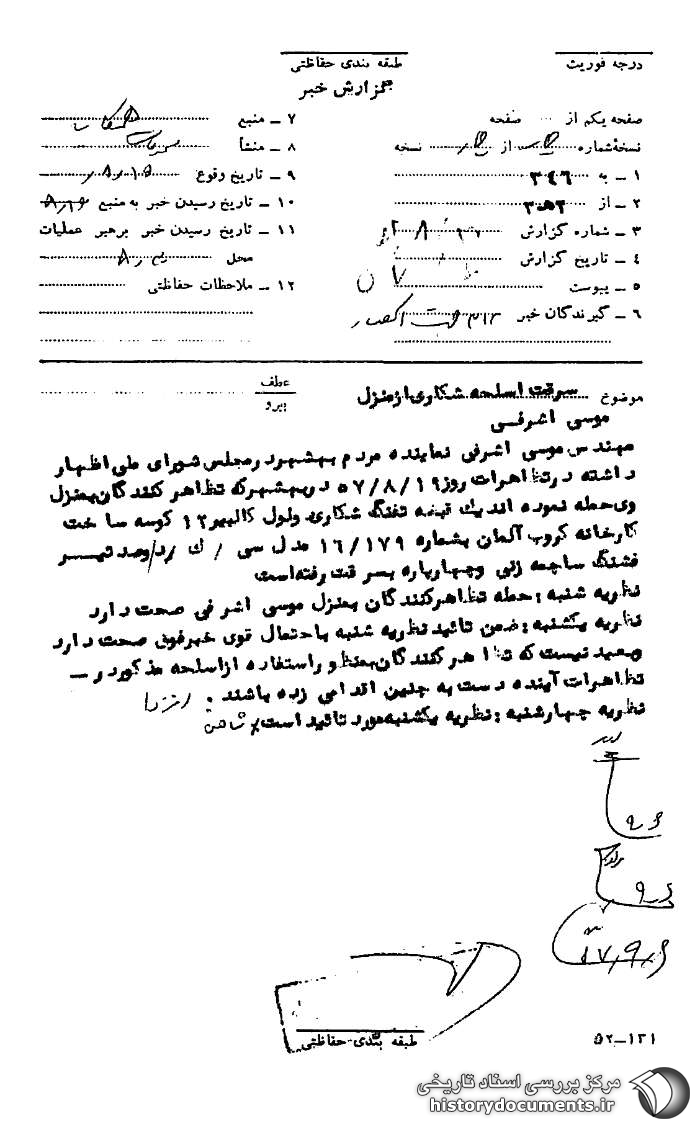 درجه فوریت
طبقه بندی حفاظتی
گزارش خبر
صفحه یکم از ... صفحه
نسخهٔ شماره ... از ... نسخه
۱ ــ به ۳٤٦
۲ ــ از ۳۰۵۲
۳ ــ شماره گزارش
٤ ــ تاریخ گزارش
۵ ــ پیوست
٦ ــ گیرندگان خبر
۷ ــ منبع
۸ ــ منشأ
۹ ــ تاریخ وقوع
۱۰ ــ تاریخ رسیدن خبر به منبع
۱۱ ــ تاریخ رسیدن خبر برهبر عملیات
محل
۱۲ ــ ملاحظات حفاظتی
موضوع سرقت اسلحه شکاری از منزل
موسی اشرفی
عطف
پیرو
مهندس موسی اشرفی نماینده مردم بهشهر در مجلس شورای ملی اظهار
داشته در تظاهرات روز ۵۷/۸/۱۹ در بهشهر که تظاهرکنندگان بمنزل
وی حمله نموده اند یک قبضه تفنگ شکاری دولول کالیبر ۱۲ کوسه ساخت
کارخانه کروپ آلمان بشماره ۱٦/۱۷۹ مدل سی / ک / رد/ وصد تیر
فشنگ ساچمه زنی وچهارپاره بسرقت رفته است
نظریه شنبه : حمله تظاهرکنندگان بمنزل موسی اشرفی صحت دارد
نظریه یکشنبه : ضمن تائید نظریه شنبه باحتمال قوی خبرفوق صحت دارد
وبعید نیست که تظاهرکنندگان بمنظور استفاده ازاسلحه مذکور در ــ
تظاهرات آینده دست به چنین اقدامی زده باشند .
نظریه چهارشنبه : نظریه یکشنبه مورد تائید است
طبقه بندی حفاظتی
۵۲ــ۱۳۱
مرکز بررسی اسناد تاریخی
historydocuments.ir